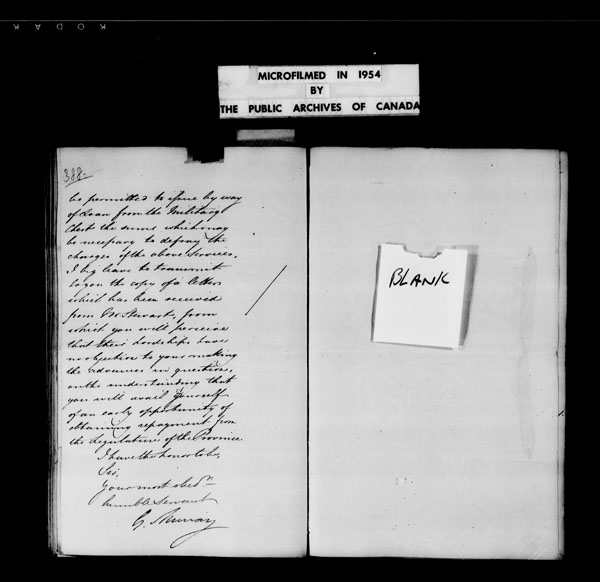 KODAK
MICROFILMED IN 1954
BY
THE PUBLIC ARCHIVES OF CANADA
388.
be permitted to issue by way
of Loan from the Military
Chest the sums which may
be necessary to defray the
charges of the above Services,
I beg leave to transmit
to you the copy of a letter
which has been received
from Mr Stewart, from
which you will perceive
that their Lordships have
no objection to your making
the advances in question,
on the understanding that
you will avail yourself
of an early opportunity of
obtaining repayment from
the Legislature of the Province.
I have the honor to be,
Sir,
Your most obedt
humble Servant
G. Murray
BLANK